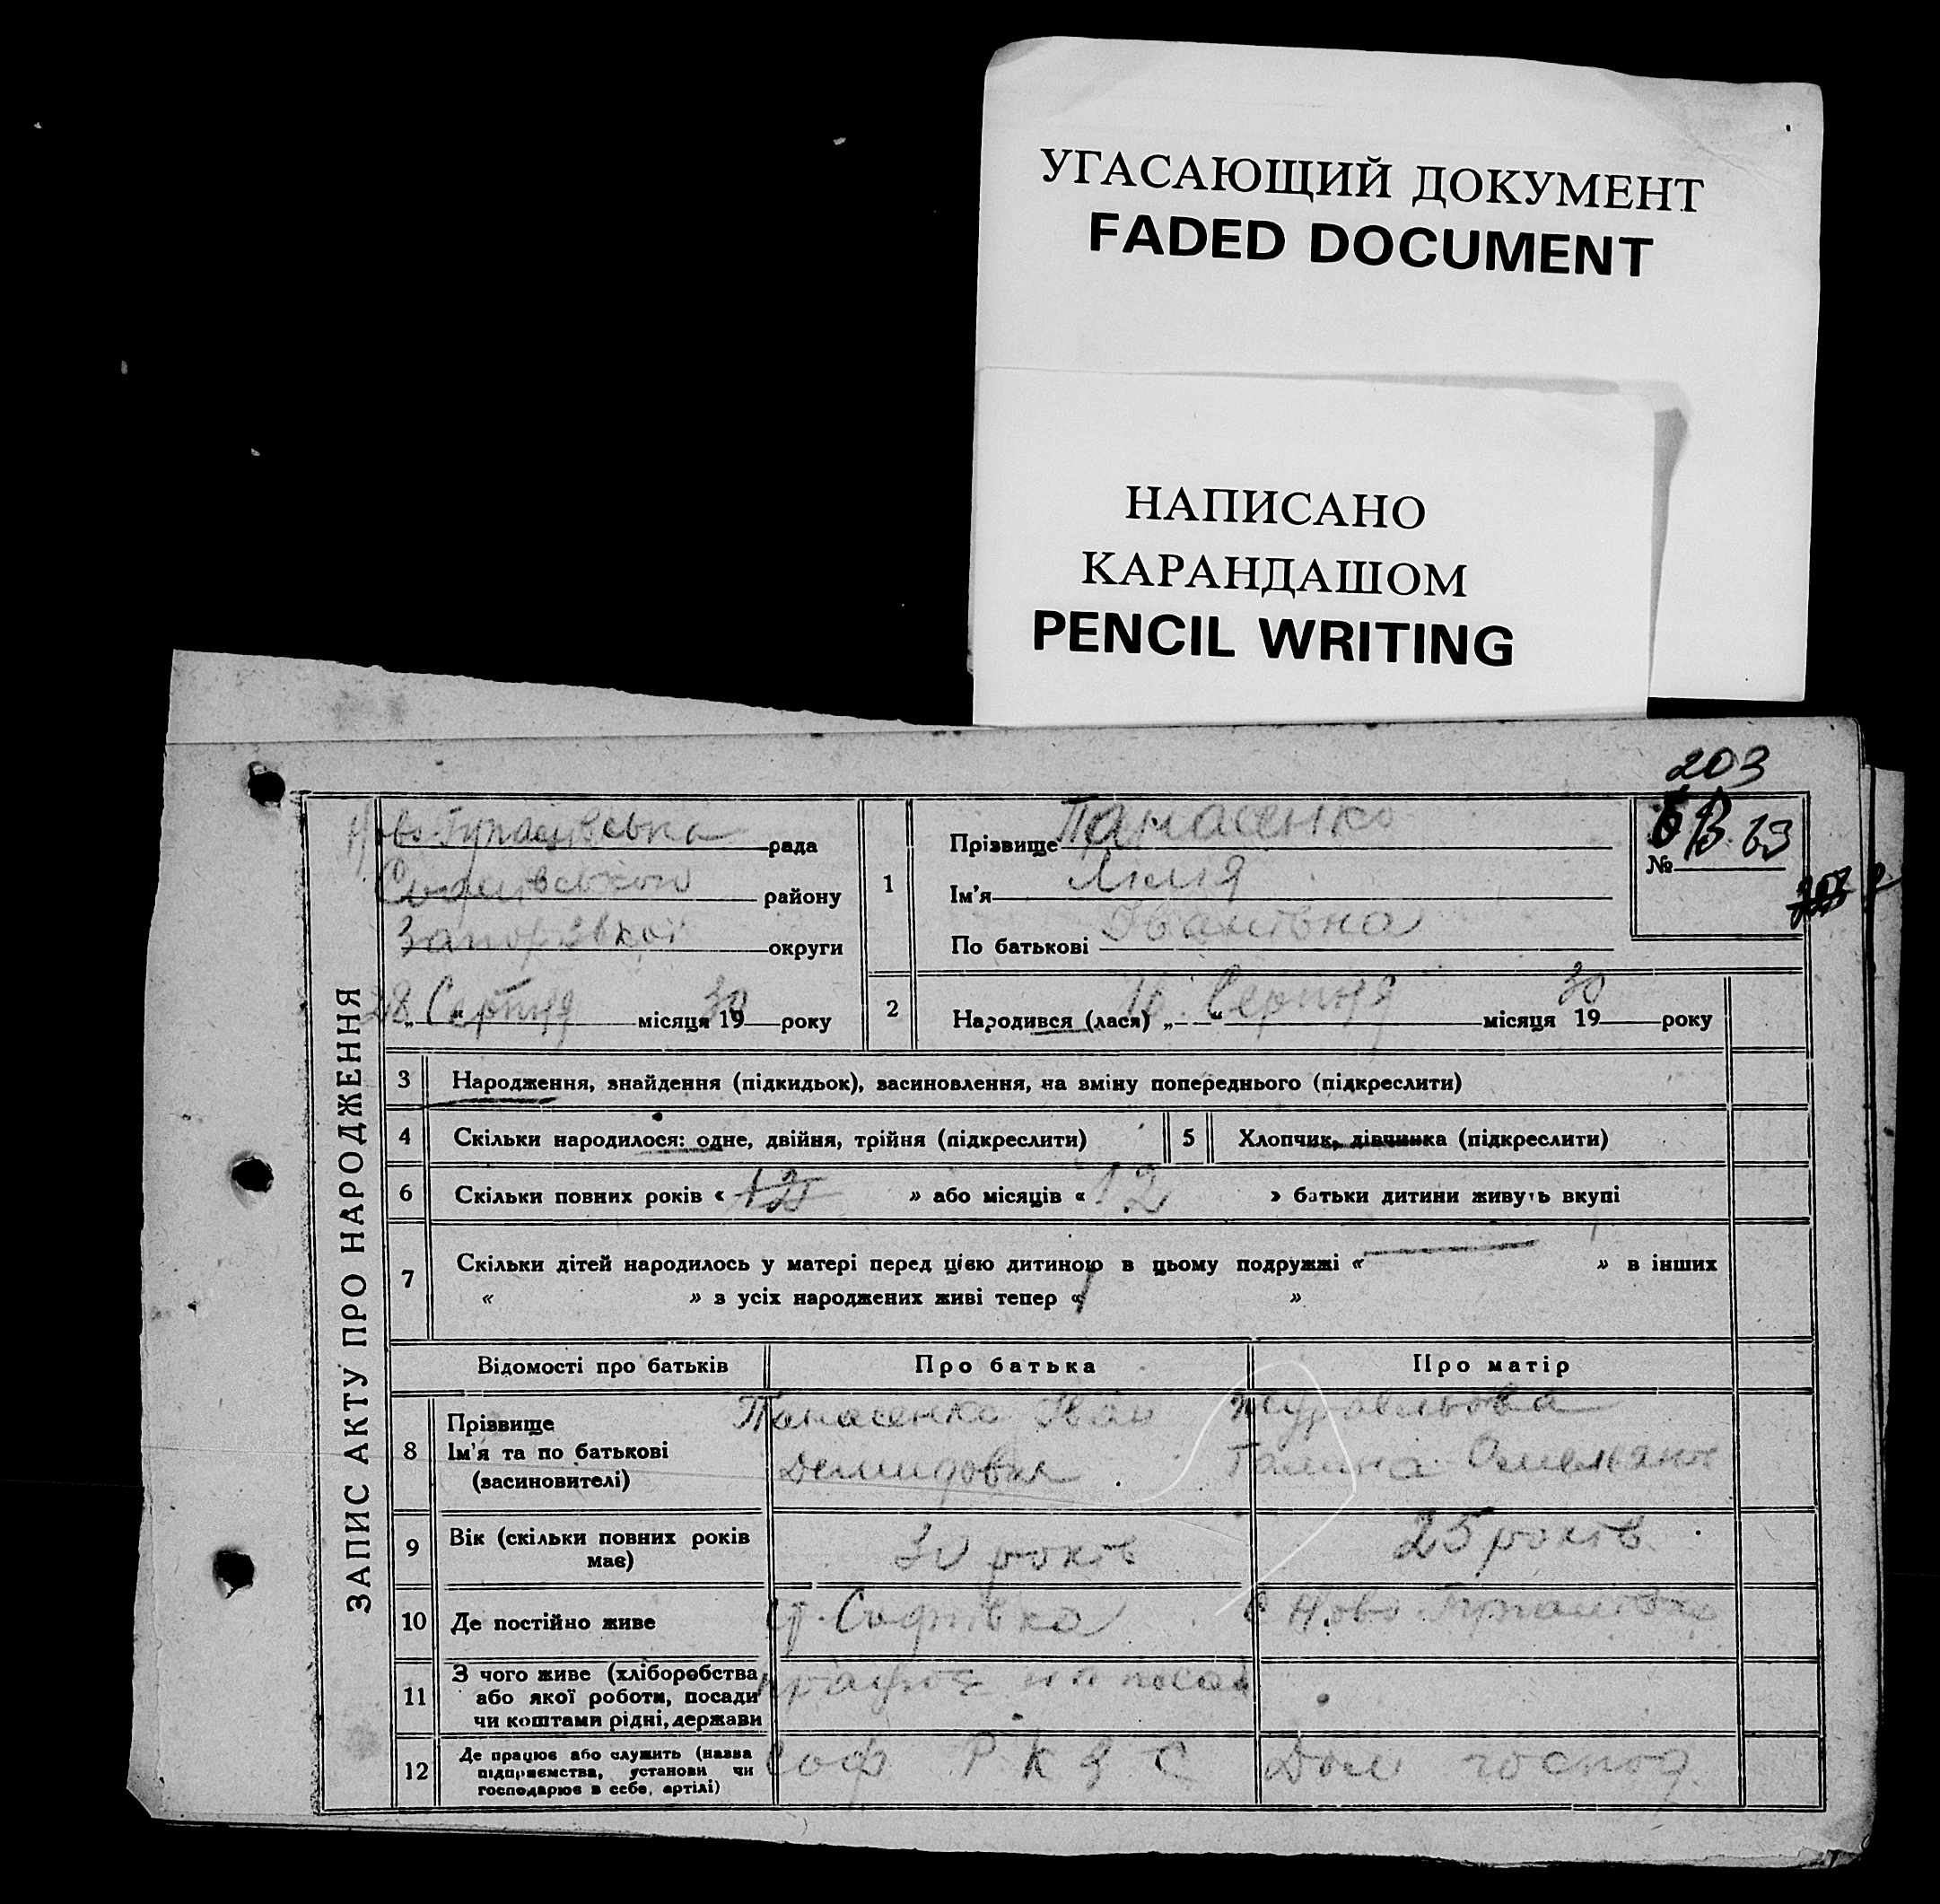 УГАСАЮЩИЙ ДОКУМЕНТ
FADED DOCUMENT
НАПИСАНО
КАРАНДАШОМ
PENCIL WRITING
203
ЗАПИС АКТУ ПРО НАРОДЖЕННЯ
рада
району
округи
28 Серпня місяця 1930 року
1
Прізвище Панасенко
Ім'я Лілія
По батькові Іванівна
№ 63
2
Народився (лася) „16“ Серпня місяця 1930 року
3 Народження, знайдення (підкидьок), васиновлення, на вміну попереднього (підкреслити)
4 Скільки народилося: одне, двійня, трійня (підкреслити)
5 Хлопчик, дівчинка (підкреслити)
6 Скільки повних років « 12 » або місяців « 12 » батьки дитини живуть вкупі
7 Скільки дітей народилось у матері перед цією дитиною в цьому подружжі « — » в інших
« » з усіх народжених живі тепер « »
Відомості про батьків
Про батька
Про матір
8
Прізвище
Ім'я та по батькові
(васиновителі)
Панасенко Іван
Демидович
Журавльова
Галина Омельян
9
Вік (скільки повних років
має)
30 років
25 років
10 Де постійно живе
ст. Софіївка
с Ново
11
З чого живе (хліборобства
або якої роботи, посади
чи коштами рідні, держави
працює на посаді
12
Де працює або служить (назва
підприємства, установи чи
господарює в себе, артілі)
Соф Р К С
Дом господ.